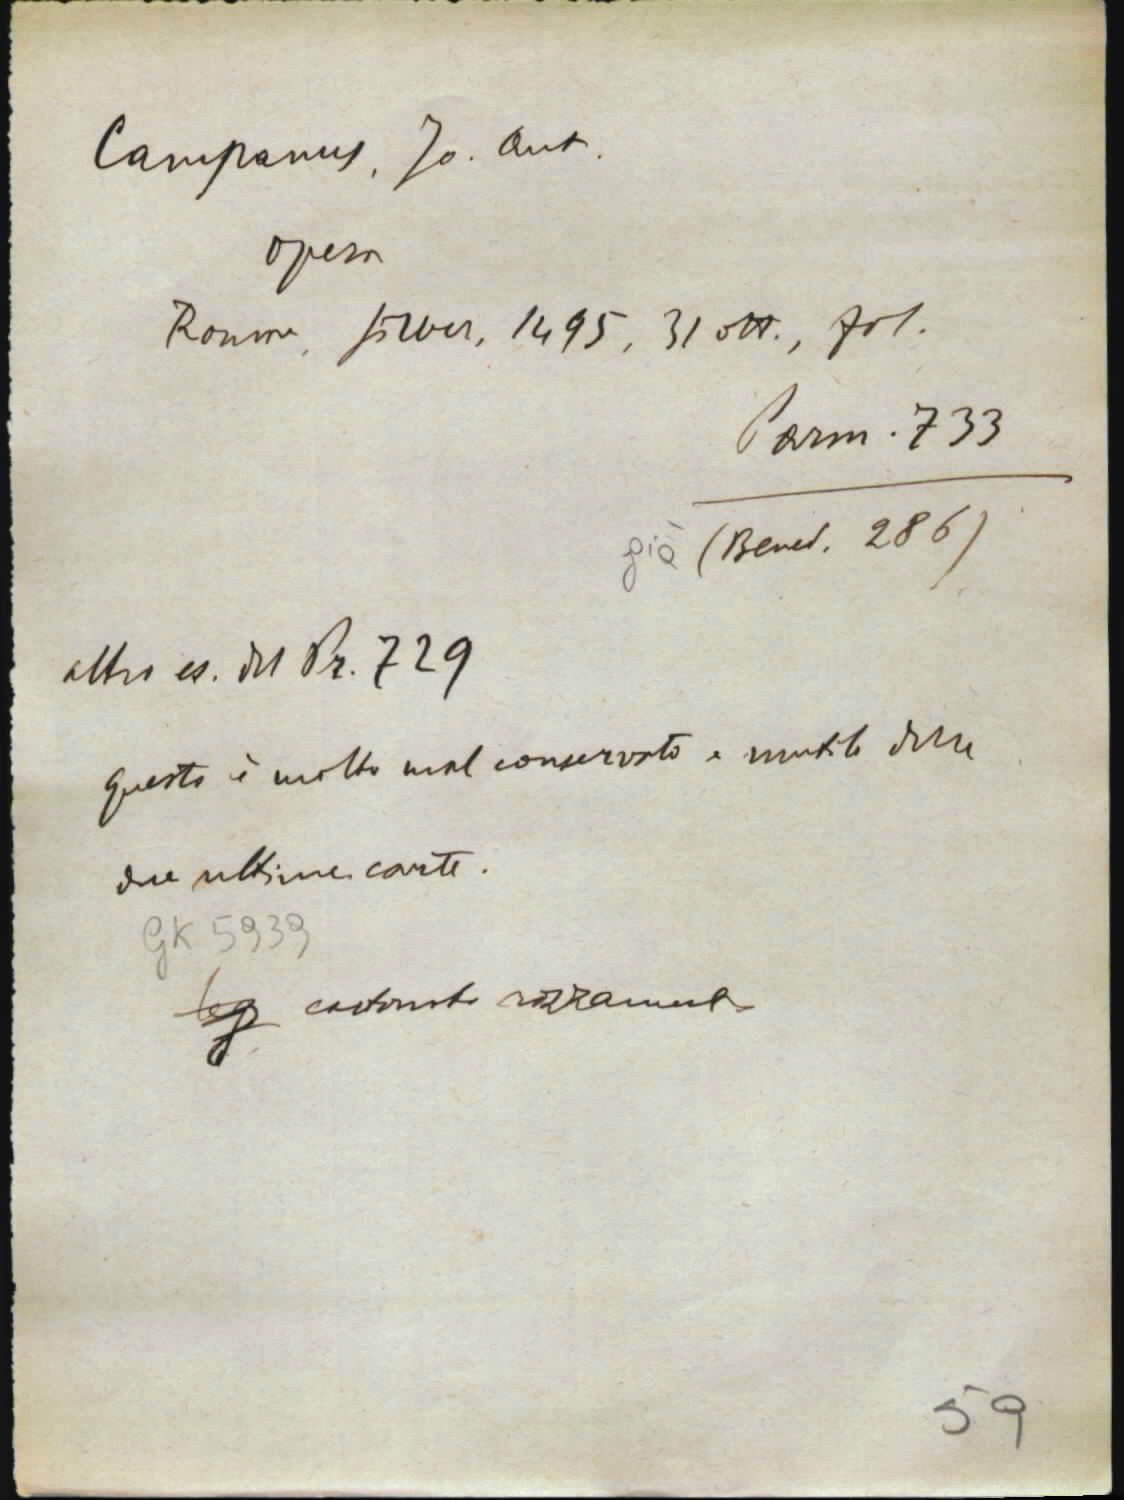 Campanus, Jo. Ant.
opera
Roma, Silber, 1495, 31 ott., fol.
Parm. 733
già (Bened. 286)
altro es. del Pr. 729
questo è molto mal conservato e mutilo delle
due ultime carte.
GK 5939
leg cartonato rozzamente
59